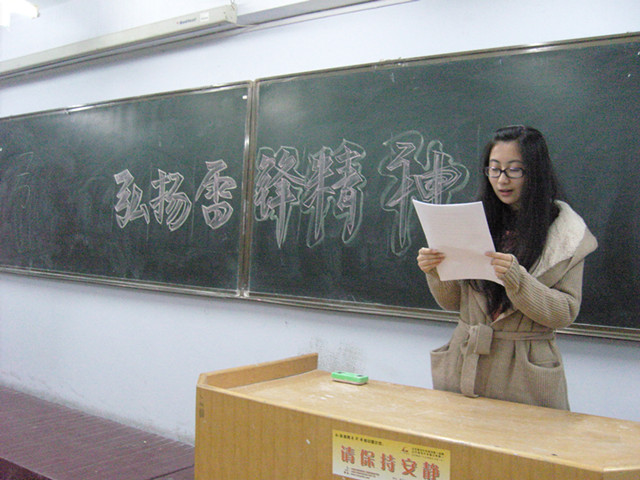 弘扬雷锋精神
请保持安静